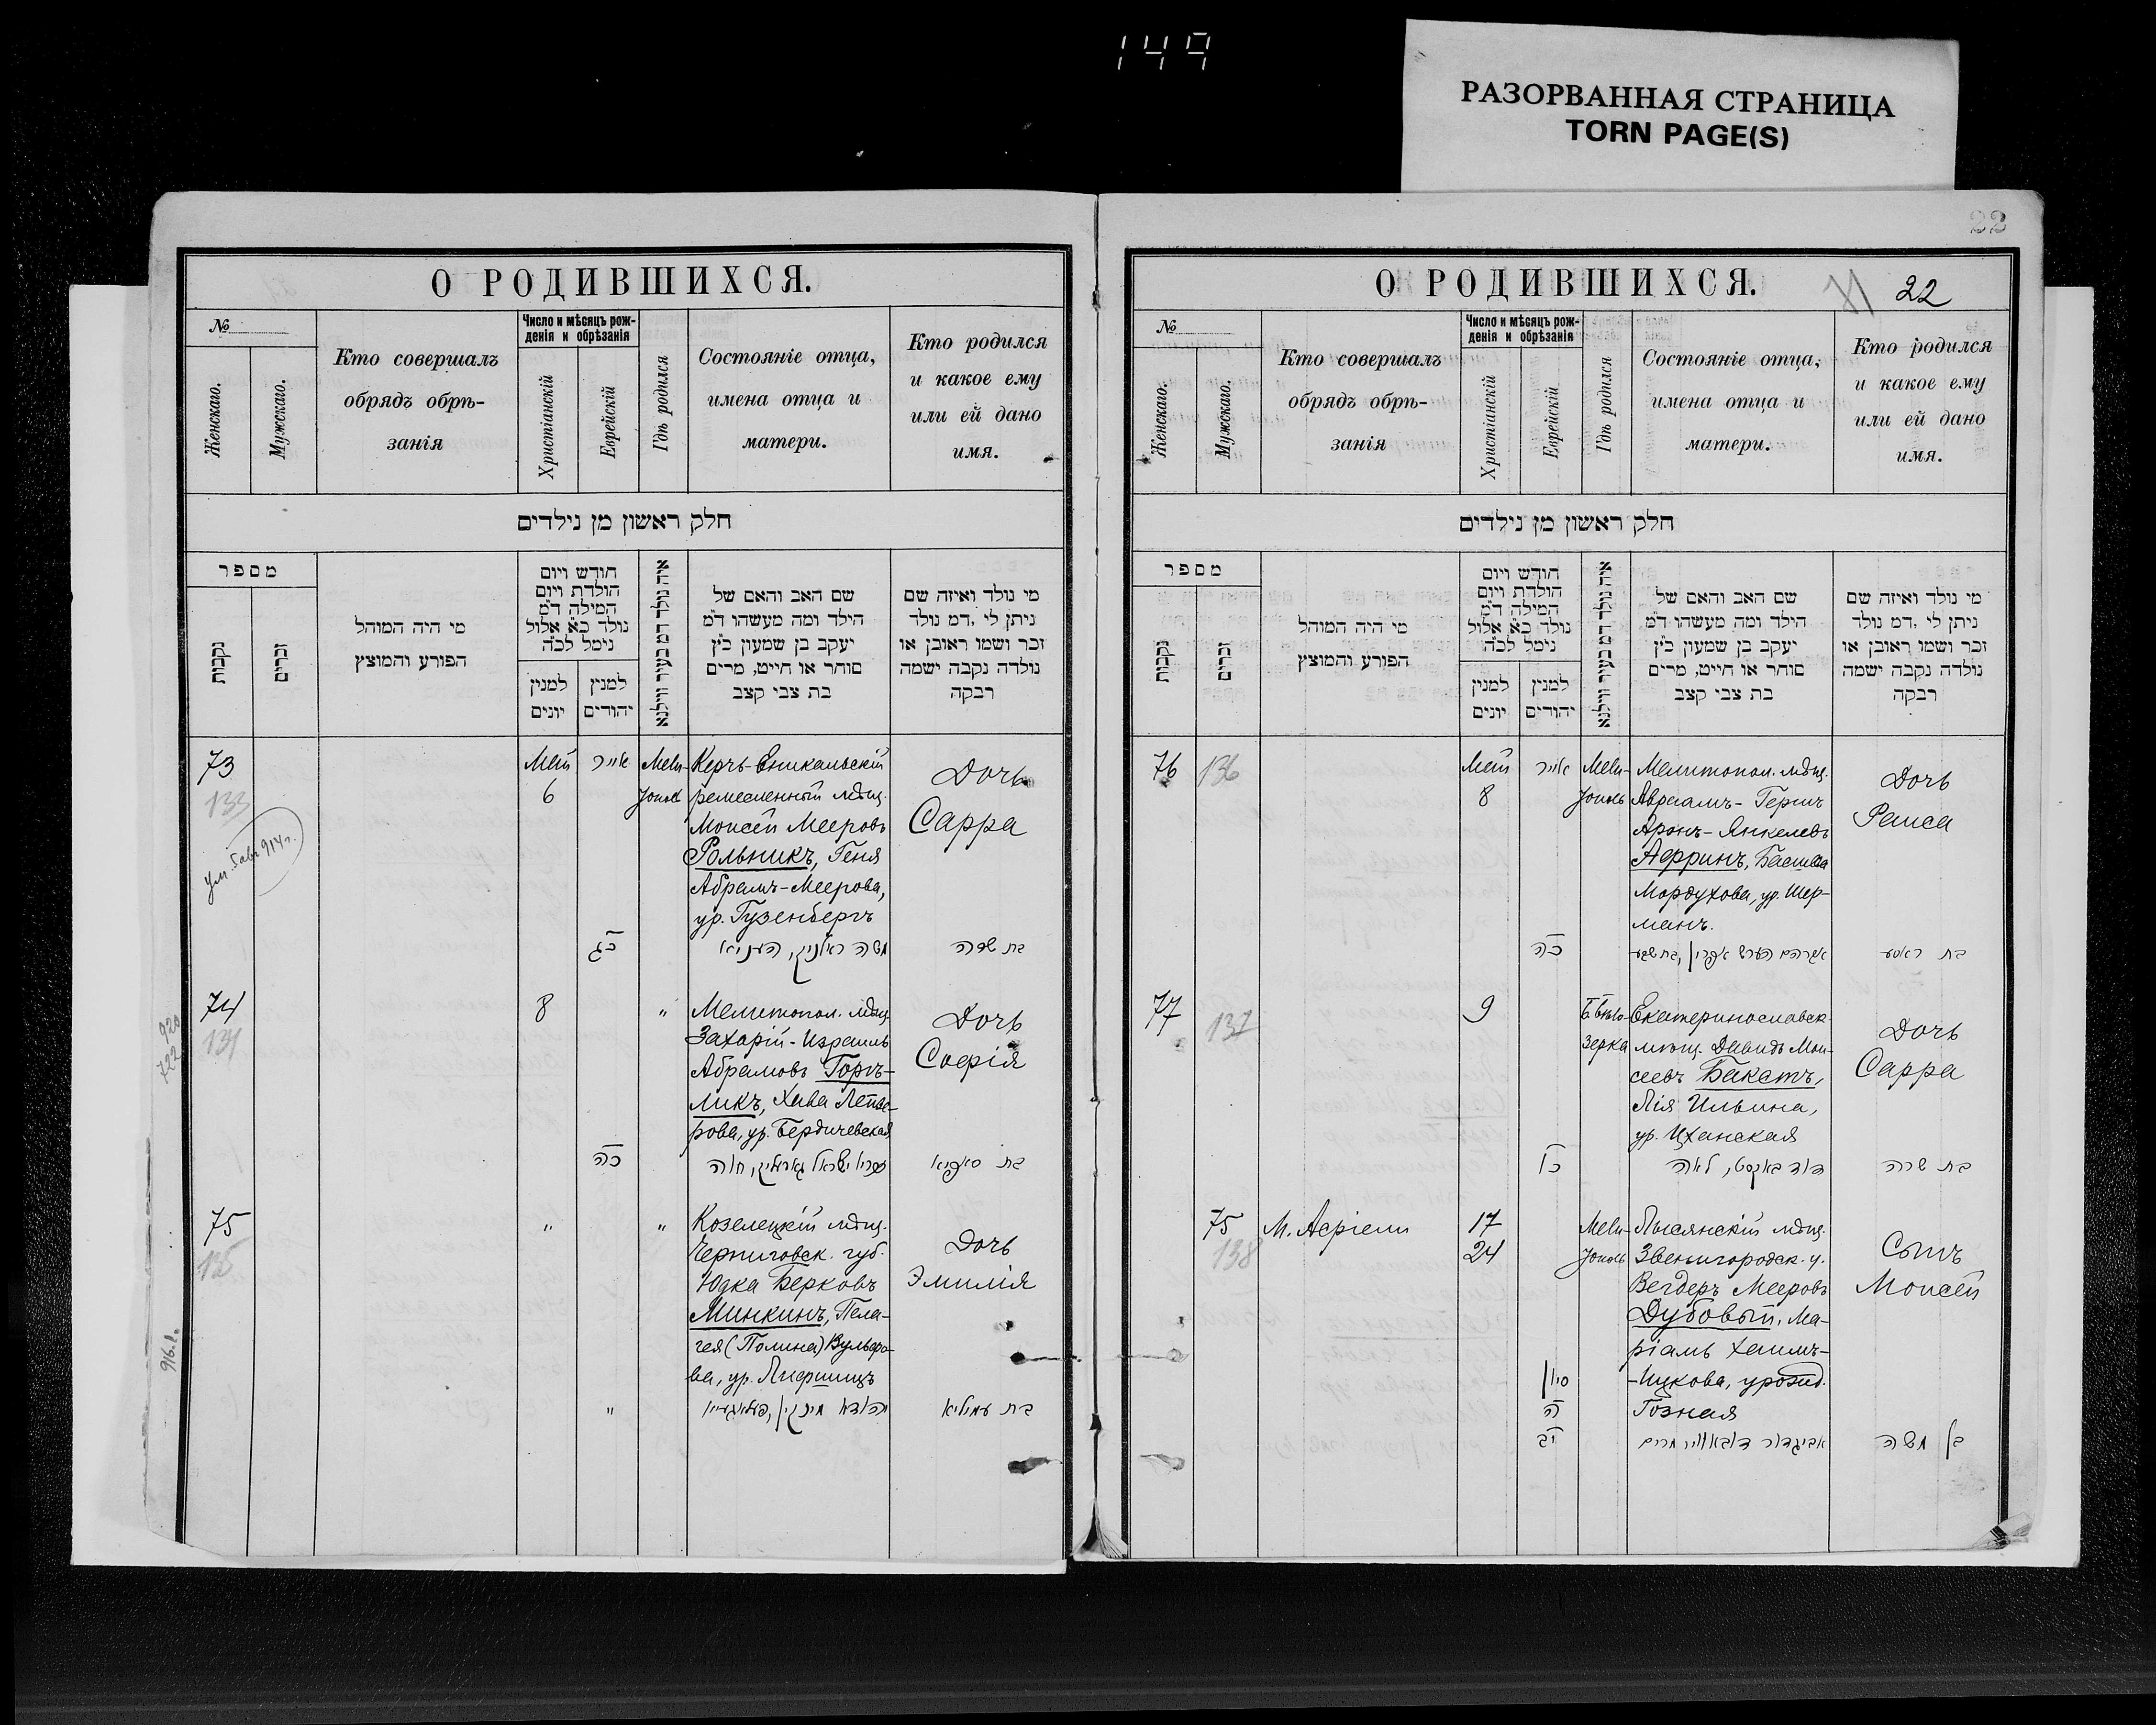 149
РАЗОРВАННАЯ СТРАНИЦА
TORN PAGE(S)
О РОДИВШИХСЯ.
№
Женскаго.
Мужскаго.
Кто совершалъ
обрядъ обрѣ-
занія
Число и мѣсяцъ рож-
денія и обрѣзанія
Христіанскій
Еврейскій
Гдѣ родился
Состояніе отца,
имена отца и
матери.
Кто родился
и какое ему
или ей дано
имя.
חלק ראשון מן נילדים
מספר
נקבות
זכרים
מי היה המוהל
הפורע והמוצץ
חודש ויום
הולדת ויום
המילה ד״מ
נולד כ״א אלול
נימל לכ״ה
למנין
יונים
למנין
יהודים
איה נולד דמ בעיר ווילנא
שם האב והאם של
הילד ומה מעשהו ד״מ
יעקב בן שמעון כ״ץ
סוחר או חייט, מרים
בת צבי קצב
מי נולד ואיזה שם
ניתן לי, דמ נולד
זכר ושמו ראובן או
נולדה נקבה ישמה
רבקה
73
133
Ум. 5 авг 914 г.
Май
6
אייר
כג
Мели-
тополь
Керчь-Еникальскій
ремесленный мѣщ.
Моисей Мееровъ
Рольникъ, Геня
Абрамъ-Меерова,
ур. Гузенбергъ
Дочь
Сарра
בת שרה
74
134
8
כה
"
Мелитопол. мѣщ.
Захарій-Израиль
Абрамовъ Горъ-
ликъ, Хава Лейзе-
рова, ур. Бердичевская
Дочь
Софія
בת סאפיא
75
135
"
"
"
Козелецкій мѣщ.
Черниговск. губ.
Юдка Берковъ
Минкинъ, Пела-
гея (Полина) Вульфо-
ва, ур. Лифшицъ
Дочь
Эмилія
בת עמיליא
920
722
916.1.
22
О РОДИВШИХСЯ.
22
№
Женскаго.
Мужскаго.
Кто совершалъ
обрядъ обрѣ-
занія
Число и мѣсяцъ рож-
денія и обрѣзанія
Христіанскій
Еврейскій
Гдѣ родился
Состояніе отца,
имена отца и
матери.
Кто родился
и какое ему
или ей дано
имя.
חלק ראשון מן נילדים
מספר
נקבות
זכרים
מי היה המוהל
הפורע והמוצץ
חודש ויום
הולדת ויום
המילה ד״מ
נולד כ״א אלול
נימל לכ״ה
למנין
יונים
למנין
יהודים
איה נולד דמ בעיר ווילנא
שם האב והאם של
הילד ומה מעשהו ד״מ
יעקב בן שמעון כ״ץ
סוחר או חייט, מרים
בת צבי קצב
מי נולד ואיזה שם
ניתן לי, דמ נולד
זכר ושמו ראובן או
נולדה נקבה ישמה
רבקה
76
136
Май
8
אייר
כה
Мели-
тополь
Мелитопол. мѣщ.
Авраамъ-Гершъ
Аронъ-Янкелевъ
Аерринъ, Басшева
Мордухова, ур. Шер-
манъ.
Дочь
Раиса
77
137
9
כו
Б. Бѣло-
зерка
Екатеринославск.
мѣщ. Давидъ Мои-
сеевъ Бакстъ,
Лія Ильина,
ур. Цханская
דוד באקסט, לאה
Дочь
Сарра
בת שרה
75
138
М. Асріели
17
24
סיון
ה
יב
Мели-
тополь
Лысянскій мѣщ.
Звенигородск. у.
Вегдеръ Мееровъ
Дубовый, Ма-
ріамъ Хаимъ-
-Ицкова, урожд.
Гозная
אביגדור דובאווי, מרים
Сынъ
Моисей
בן משה